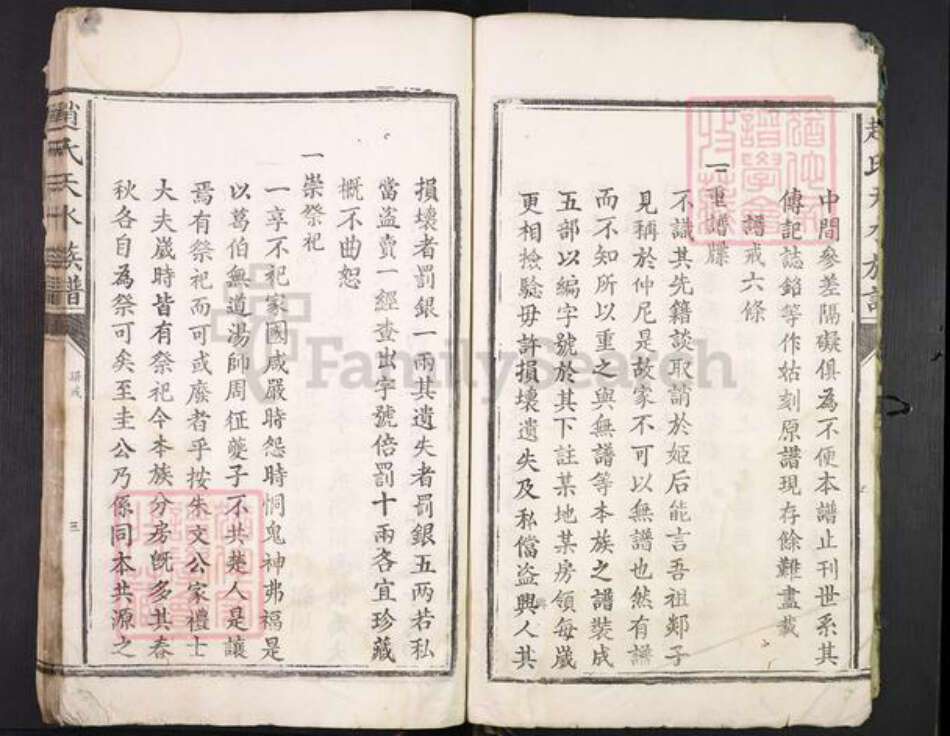 中間參差隔礙俱為不便本譜止刊世系其
傳記誌銘等作姑刻原譜現存餘難盡載
譜戒六條
一重譜牒
不識其先籍談取誚於姬后能言吾祖郯子
見稱於仲尼是故家不可以無譜也然有譜
而不知所以重之與無譜等本族之譜裝成
五部以編字號於其下註某地某房領每歲
更相撿驗毋許損壞遺失及私儅盜與人其
損壞者罰銀一兩其遺失者罰銀五兩若私
當盜賣一經查出字號倍罰十兩各宜珍藏
概不曲恕
一崇祭祀
一享不祀家國咸嚴時怨時恫鬼神弗福是
以葛伯無道湯師周征夔子不共楚人是讓
焉有祭祀而可或廢者乎按朱文公家禮士
大夫歲時皆有祭祀今本族分房旣多其春
秋各自為祭可矣至圭公乃係同本共源之
趙氏天水族譜
譜戒
三
趙氏天水族譜
FamilySearch